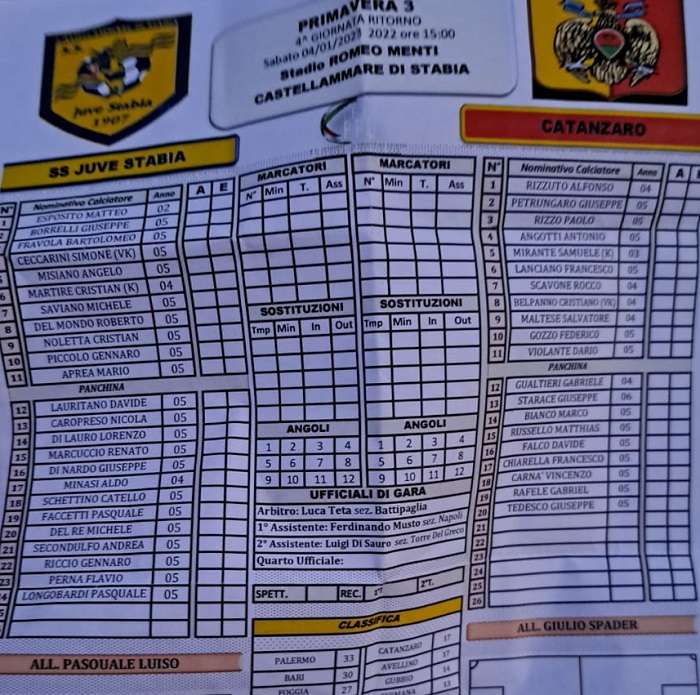 PRIMAVERA 3
4^ GIORNATA RITORNO
Sabato 04/01/2023 2022 ore 15:00
Stadio ROMEO MENTI
CASTELLAMMARE DI STABIA
Juve Stabia
1907
SS JUVE STABIA
N° Nominativo Calciatore Anno A E
1 ESPOSITO MATTEO 02
2 BORRELLI GIUSEPPE 05
FRAVOLA BARTOLOMEO 05
CECCARINI SIMONE (VK) 05
5 MISIANO ANGELO 05
6 MARTIRE CRISTIAN (K) 04
7 SAVIANO MICHELE 05
8 DEL MONDO ROBERTO 05
9 NOLETTA CRISTIAN 05
10 PICCOLO GENNARO 05
11 APREA MARIO 05
PANCHINA
12 LAURITANO DAVIDE 05
13 CAROPRESO NICOLA 05
14 DI LAURO LORENZO 05
15 MARCUCCIO RENATO 05
16 DI NARDO GIUSEPPE 05
17 MINASI ALDO 04
18 SCHETTINO CATELLO 05
19 FACCETTI PASQUALE 05
20 DEL RE MICHELE 05
21 SECONDULFO ANDREA 05
22 RICCIO GENNARO 05
23 PERNA FLAVIO 05
24 LONGOBARDI PASQUALE 05
ALL. PASQUALE LUISO
MARCATORI
N° Min T. Ass
SOSTITUZIONI
Tmp Min In Out
ANGOLI
1 2 3 4
5 6 7 8
9 10 11 12
MARCATORI
N° Min T. Ass
SOSTITUZIONI
Tmp Min In Out
ANGOLI
1 2 3 4
5 6 7 8
9 10 11 12
UFFICIALI DI GARA
Arbitro: Luca Teta sez. Battipaglia
1° Assistente: Ferdinando Musto sez. Napoli
2° Assistente: Luigi Di Sauro sez. Torre Del Greco
Quarto Ufficiale:
SPETT. REC. 1°T 2°T.
CLASSIFICA
PALERMO 33
BARI 30
FOGGIA 27
CATANZARO 17
AVELLINO 14
GUBBIO 14
13
CATANZARO
N° Nominativo Calciatore Anno A E
1 RIZZUTO ALFONSO 04
2 PETRUNGARO GIUSEPPE 05
3 RIZZO PAOLO 05
4 ANGOTTI ANTONIO 05
5 MIRANTE SAMUELE (K) 03
6 LANCIANO FRANCESCO 05
7 SCAVONE ROCCO 04
8 BELPANNO CRISTIANO (VK) 04
9 MALTESE SALVATORE 04
10 GOZZO FEDERICO 05
11 VIOLANTE DARIO 05
PANCHINA
12 GUALTIERI GABRIELE 04
13 STARACE GIUSEPPE 06
14 BIANCO MARCO 05
15 RUSSELLO MATTHIAS 05
16 FALCO DAVIDE 05
17 CHIARELLA FRANCESCO 05
18 CARNA' VINCENZO 05
19 RAFELE GABRIEL 05
20 TEDESCO GIUSEPPE 05
21
22
23
24
25
26
ALL. GIULIO SPADER